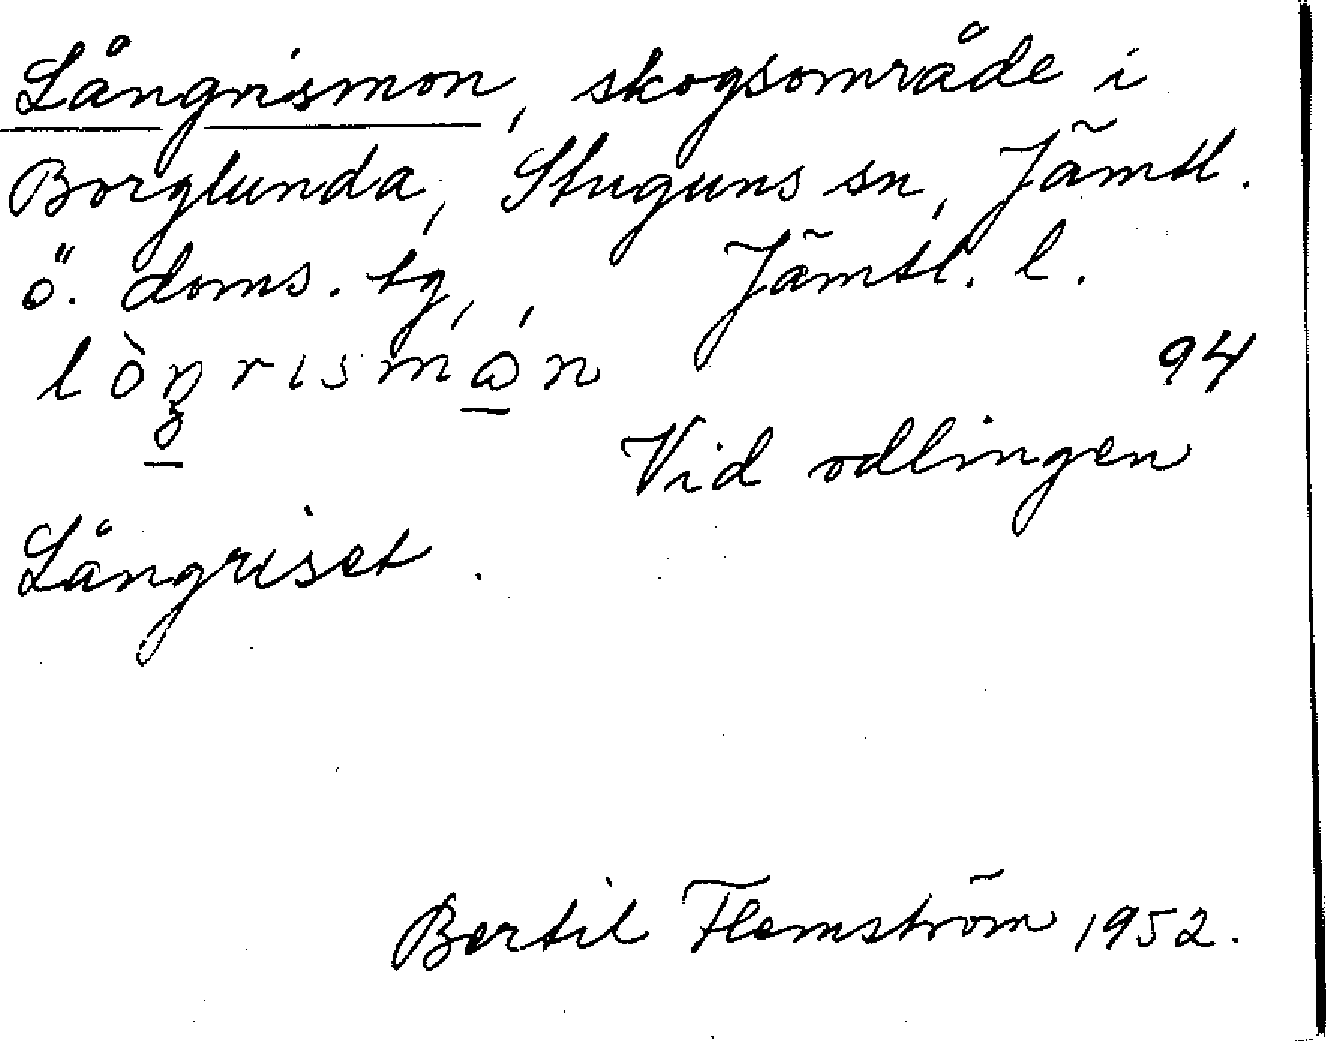 Långrismon, skogsområde i
Borglunda, Stuguns sn, Jämtl.
ö. doms. tg, Jämtl. l.
94
Vid odlingen
Långriset.
Bertil Flemström 1952.